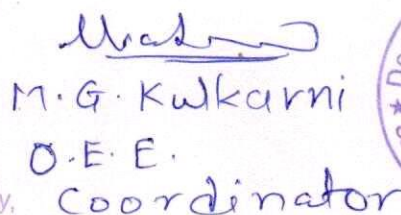 M. G. Kulkarni
O.E.E.
Coordinator